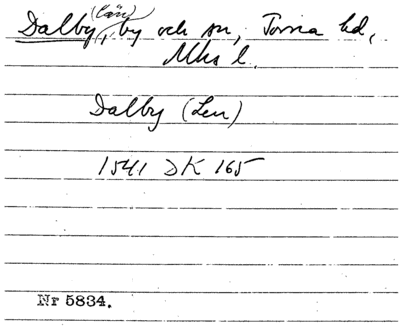 Dalby (län), by och sn, Torna hd,
Mhs l.
Dalby (Len)
1541 DK 165
Nr 5834.